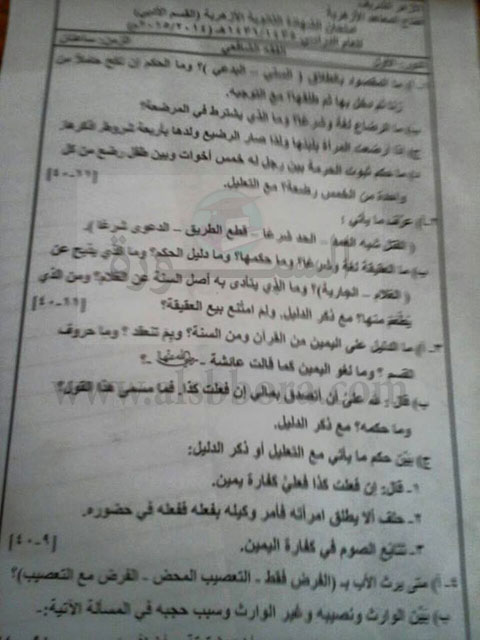 الأزهر الشريف
قطاع المعاهد الأزهرية
امتحان الشهادة الثانوية الأزهرية (القسم الأدبي)
للعام الدراسي ١٤٣٥/١٤٣٦هـ (٢٠١٤/٢٠١٥م)
الفقه الشافعي
الزمن: ساعتان
١-أ) ما المقصود بالطلاق (السني – البدعي)؟ وما الحكم إن نكح حاملاً من
زنا ثم دخل بها ثم طلقها؟ مع التوجيه.
ب) ما الرضاع لغة وشرعا؟ وما الذي يشترط في المرضعة؟
ج) إذا أرضعت المرأة بلبنها ولدا صار الرضيع ولدها بأربعة شروط
د) ما حكم ثبوت الحرمة بين رجل له خمس أخوات وبين طفل رضع من كل
واحدة من الخمس رضعة؟ مع التعليل.
٢-أ) عرف ما يأتي:
(القتل شبه العمد – الحد شرعا – قطع الطريق – الدعوى شرعا).
ب) ما العقيقة لغة وشرعا؟ وما حكمها؟ وما دليل الحكم؟ وما الذي يذبح عن
(الغلام – الجارية)؟ وما الذي يتأدى به أصل السنة عن الغلام؟ ومن الذي
يطعم منها؟ مع ذكر الدليل. ولم امتنع بيع العقيقة؟
٣-أ) ما الدليل على اليمين من القرآن ومن السنة؟ وبم تنعقد؟ وما حروف
القسم؟ وما لغو اليمين كما قالت عائشة – رضي الله عنها –؟
ب) قال: لله علىّ أن أتصدق بمالي إن فعلت كذا. فما مسمى هذا القول؟
وما حكمه؟ مع ذكر الدليل.
ج) بيّن حكم ما يأتي مع التعليل أو ذكر الدليل:
١- قال: إن فعلت كذا فعليّ كفارة يمين.
٢- حلف ألا يطلق امرأته فأمر وكيله بفعله ففعله في حضوره.
٣- تتابع الصوم في كفارة اليمين.
[٩-٤٠]
٤-أ) متى يرث الأب بـ (الفرض فقط – التعصيب المحض – الفرض مع التعصيب)؟
ب) بيّن الوارث ونصيبه وغير الوارث وسبب حجبه في المسألة الآتية:-
www.alsbbora.com